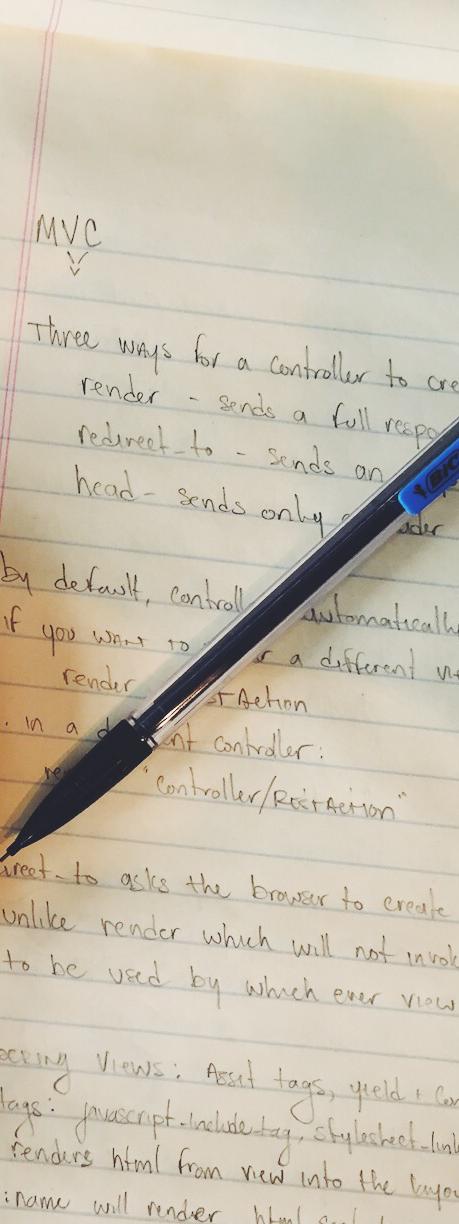 MVC
Three ways for a controller to cre
render - sends a full respo
redirect_to - sends an
head - sends only
BIC
by default, controll automatically
if you want to a different
render Action
in a controller:
"Controller/RestAction"
irect_to asks the browser to create
unlike render which will not invok
to be used by which ever view
Views: Asset tags, yield +
tags: javascript_include_tag, stylesheet_link
renders html from view into the layou
:name will render html